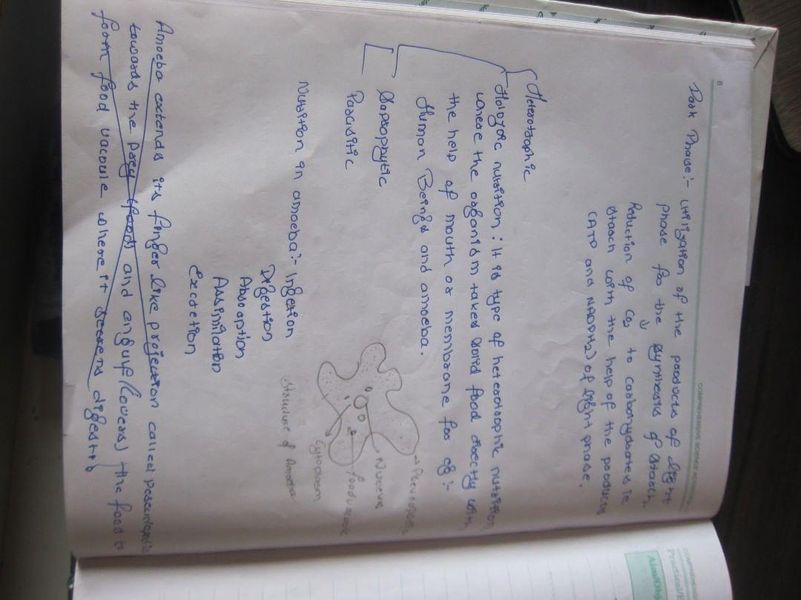 COMPREHENSIVE SCIENCE
8
Dark Phase:- Utilization of the products of light
phase for the synthesis of starch.
↓
Reduction of CO₂ to carbohydrates ie
starch with the help of the products
(ATP and NADPH₂) of light phase.
Heterotrophic
Holozoic nutrition: It is type of heterotrophic nutrition
where the organism takes solid food directly with
the help of mouth or membrane for eg:-
Human Beings and amoeba.
Saprophytic
Parasitic
Nutrition in amoeba:- Ingestion
Digestion
Absorption
Assimilation
Excretion
Nucleus
Food vacuole
Cytoplasm
Structure of Amoeba
Amoeba extends its finger like projection called
towards the prey (food) and engulf (covers) the food to
form food vacuole where it